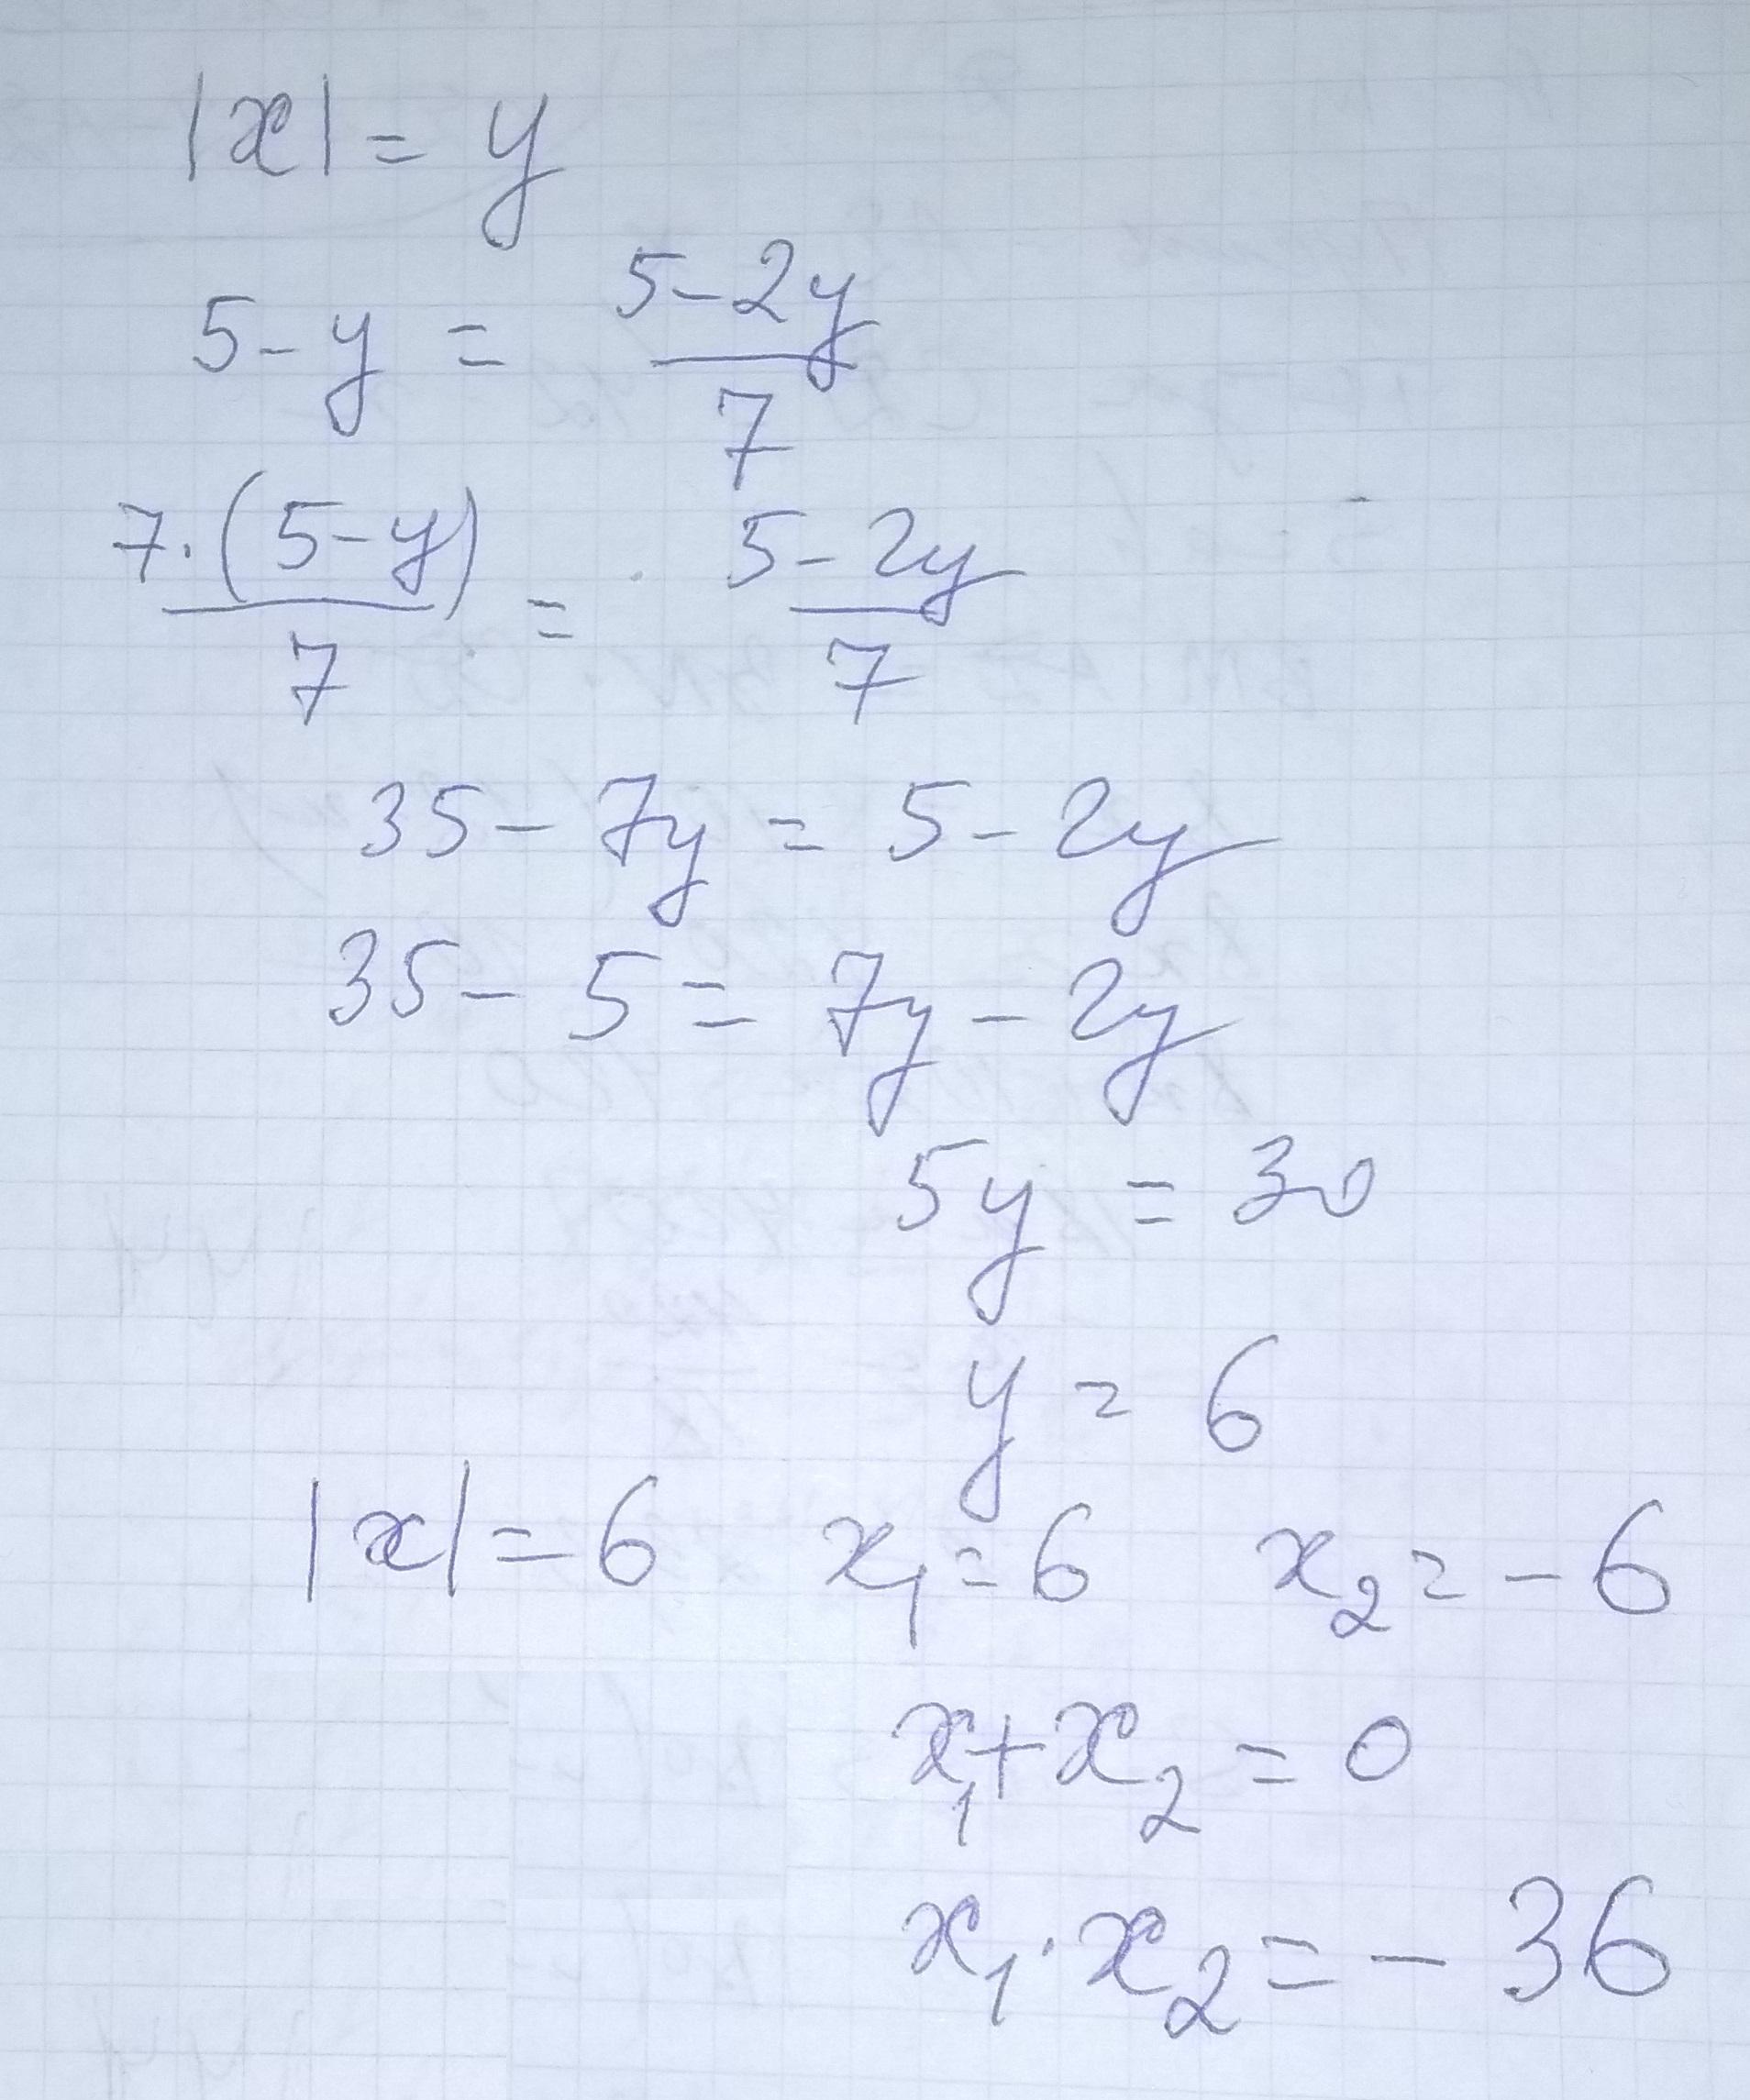 |x| = y
5 - y = (5 - 2y)/7
7·(5 - y)/7 = (5 - 2y)/7
35 - 7y = 5 - 2y
35 - 5 = 7y - 2y
5y = 30
y = 6
|x| = 6 x₁ = 6 x₂ = -6
x₁ + x₂ = 0
x₁ · x₂ = - 36